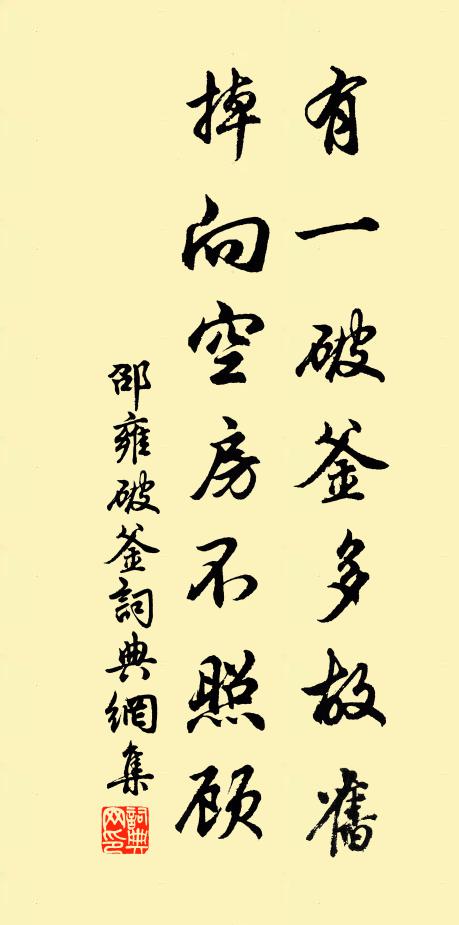 有一破釜多故舊
掉向空房不照顾
邵雍破釜詞典網集
詞典網印